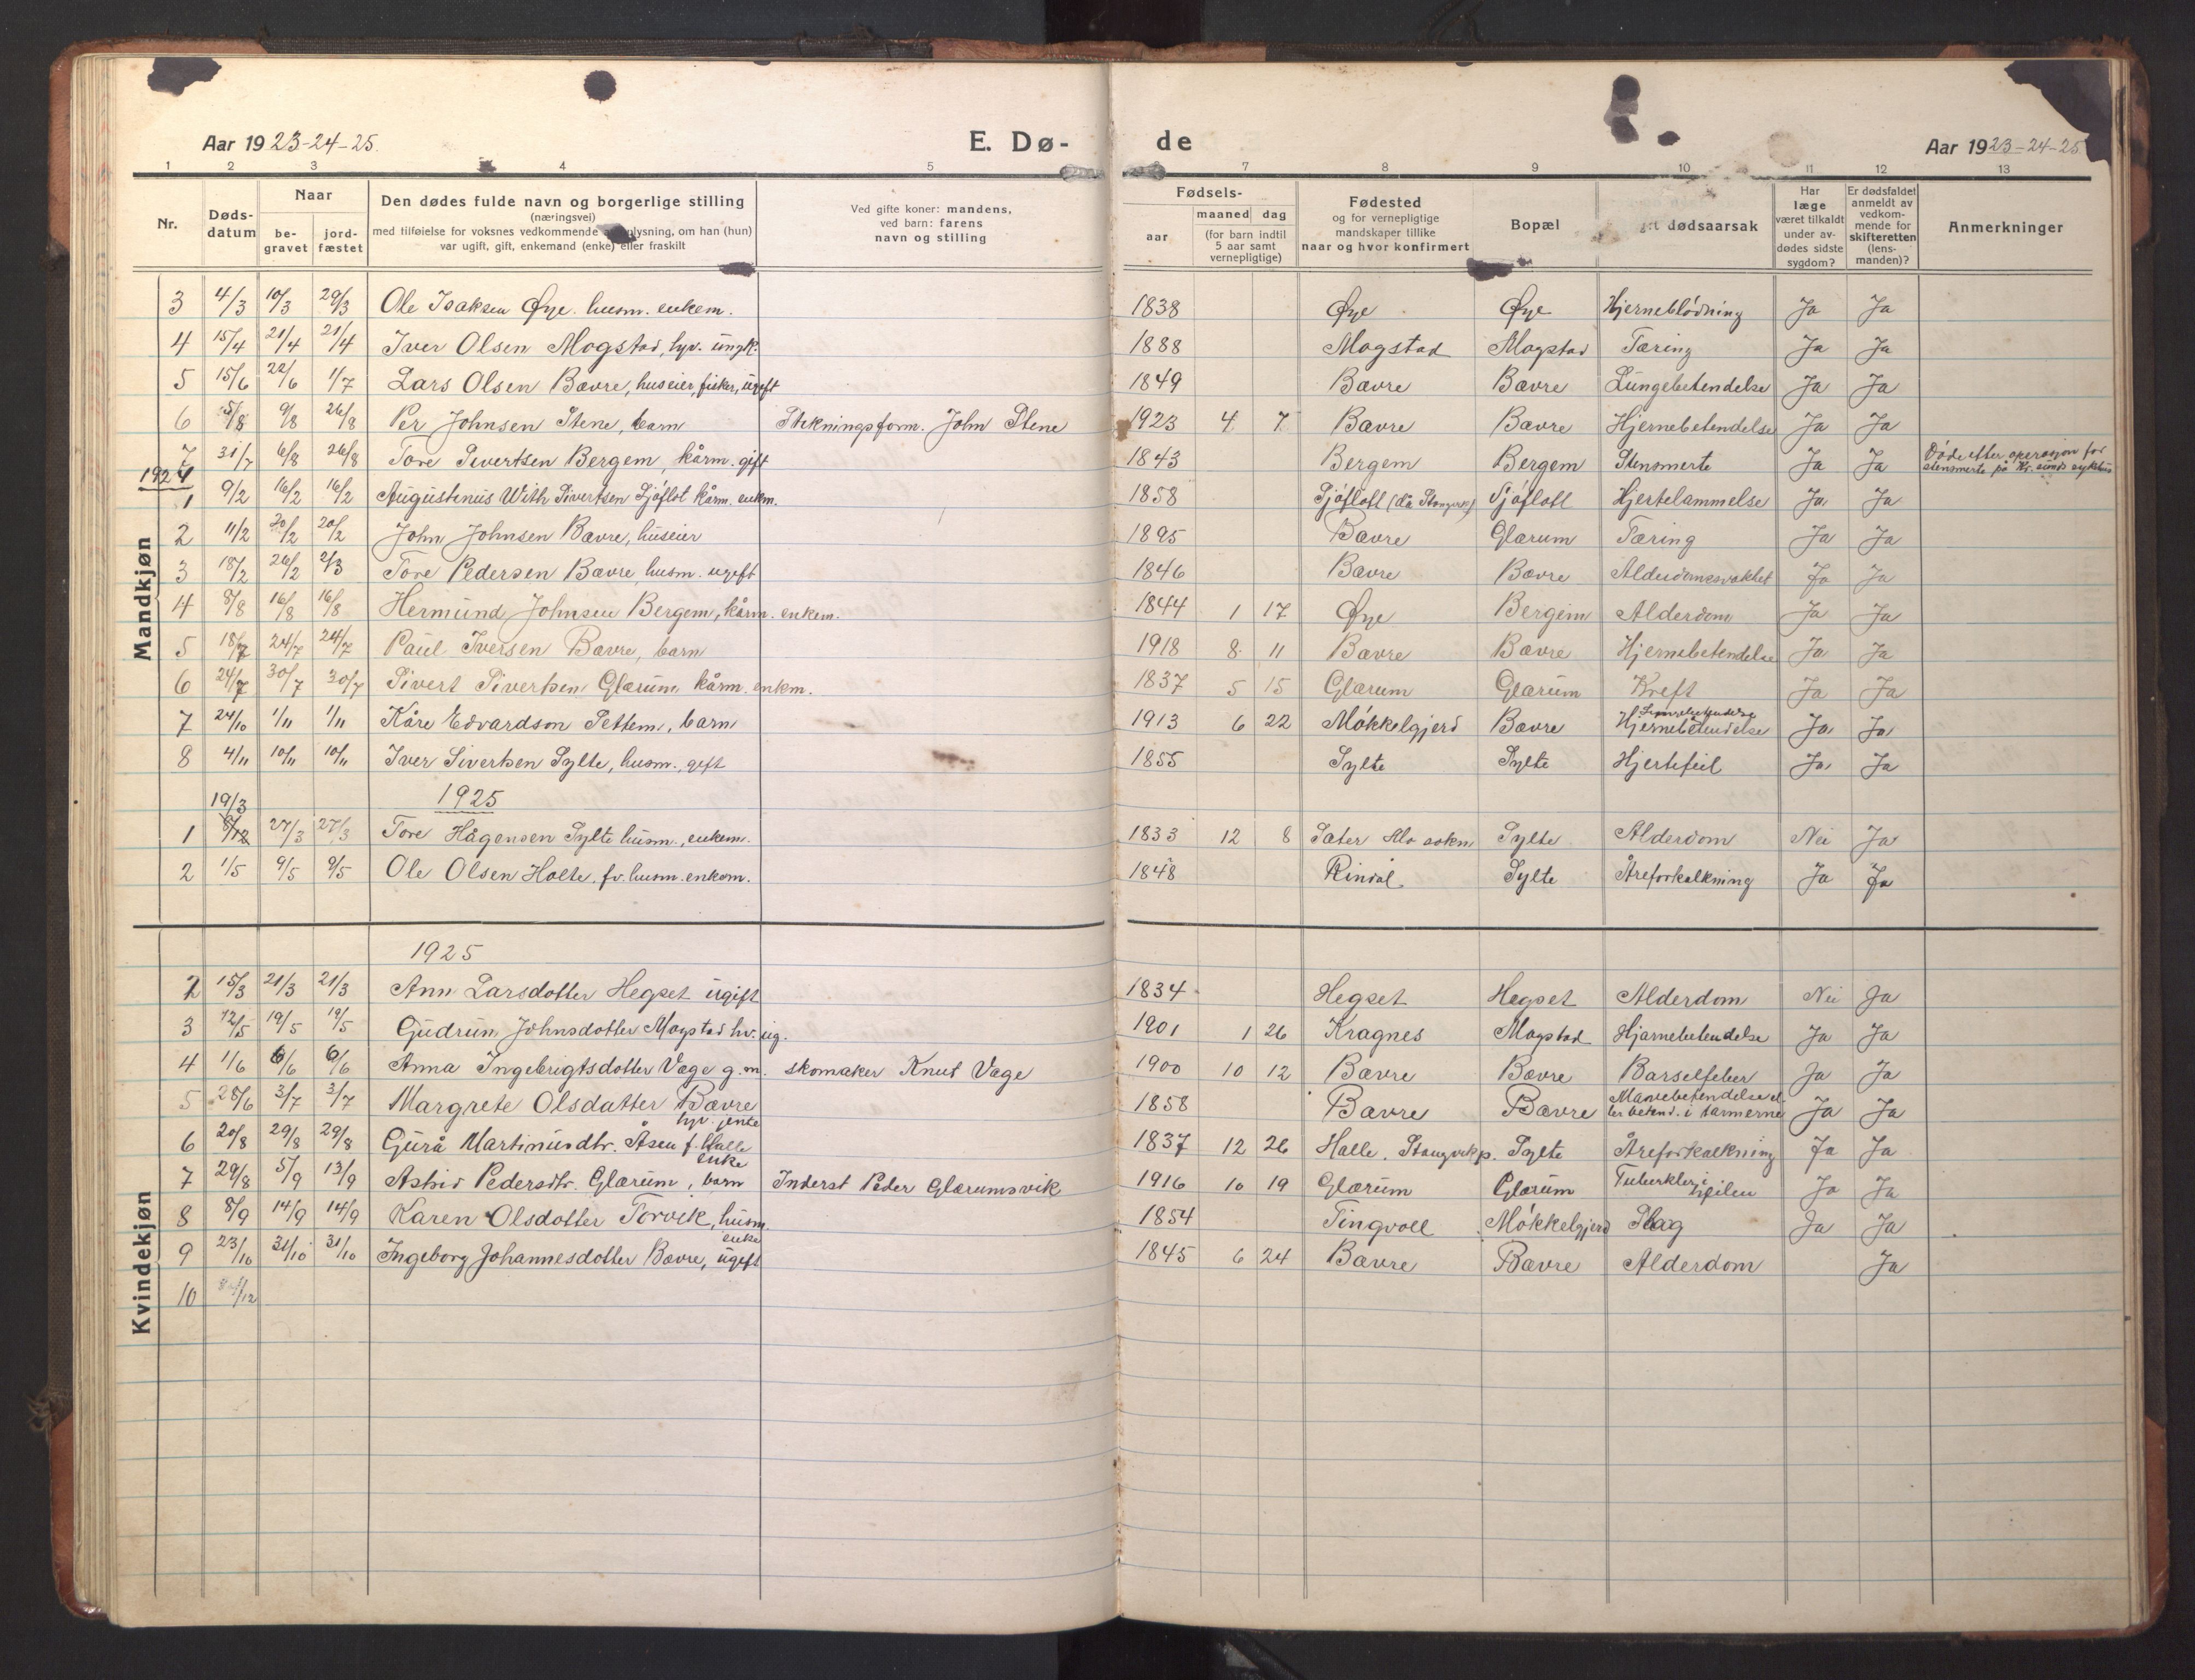 Aar 1923-24-25. E. Dø- de Aar 1923-24-25.
1 2 3 4 5 7 8 9 10 11 12 13
Nr. Døds-datum Naar be-gravet jord-fæstet Den dødes fulde navn og borgerlige stilling (næringsvei) med tilføielse for voksnes vedkommende plysning, om han (hun) var ugift, gift, enkemand (enke) eller fraskilt Ved gifte koner: mandens, ved barn: farens navn og stilling Fødsels- aar maaned dag (for barn indtil 5 aar samt vernepligtige) Fødested og for vernepligtige mandskaper tillike naar og hvor konfirmert Bopæl dødsaarsak Har læge været tilkaldt under av-dødes sidste sygdom? Er dødsfaldet anmeldt av vedkom-mende for skifteretten (lens-manden)? Anmerkninger
Mandkjøn
3 4/3 10/3 29/3 Ole Isaksen Øye husm. enkem. 1838 Øye Øye Hjerneblødning Ja Ja
4 15/4 21/4 21/4 Iver Olsen Mogstad, hjv. ungk. 1888 Mogstad Mogstad Tæring Ja Ja
5 15/6 22/6 1/7 Lars Olsen Bævre, huseier, fisker, ugift 1849 Bævre Bævre Lungebetendelse Ja Ja
6 5/8 9/8 26/8 Per Johnsen Stene, barn Stikningsform. John Stene 1923 4 7 Bævre Bævre Hjernebetendelse Ja Ja
7 31/7 6/8 26/8 Tore Sivertsen Bergem, kårm. gift 1843 Bergem Bergem Stensmerte Ja Ja Døde efter operasjon for stensmerte på Kr.sunds sykehus
1924
1 9/2 16/2 16/2 Augustinus With Sivertsen Sjøflot kårm. enkm. 1858 Sjøflott (då Stangvik) Sjøflott Hjertelammelse Ja Ja
2 11/2 20/2 20/2 John Johnsen Bævre, huseier 1895 Bævre Glærum Tæring Ja Ja
3 18/2 26/2 2/3 Tore Pedersen Bævre husm. ugift 1846 Bævre Bævre Alderdomsvakhet Ja Ja
4 8/8 16/8 16/8 Hermund Johnsen Bergem, kårm. enkem. 1844 1 17 Øye Bergem Alderdom Ja Ja
5 18/7 24/7 24/7 Paul Iversen Bævre, barn 1918 8 11 Bævre Bævre Hjernebetendelse Ja Ja
6 24/7 30/7 30/7 Sivert Sivertsen Glærum kårm. enkm. 1837 5 15 Glærum Glærum Kreft Ja Ja
7 24/10 1/11 1/11 Kåre Edvardson Settem, barn 1913 6 22 Møkkelgjerd Bævre Hjernebetendelse Ja Ja
8 4/11 10/11 10/11 Iver Sivertsen Sylte, husm., gift 1855 Sylte Sylte Hjertefeil Ja Ja
1925
1 19/3 8/12 27/3 27/3 Tore Hågensen Sylte husm., enkem. 1833 12 8 Sæter sokn Sylte Alderdom Nei Ja
2 1/5 9/5 9/5 Ole Olsen Holte, fv. husm. enkem. 1848 Rindal Sylte Åreforkalkning Ja Ja
Kvindekjøn
1925
2 15/3 21/3 21/3 Ann Larsdotter Hegset ugift 1834 Hegset Hegset Alderdom Nei Ja
3 12/5 19/5 19/5 Gudrun Johnsdotter Mogstad hv. ug. 1901 1 26 Kragnes Mogstad Hjernebetendelse Ja Ja
4 1/6 6/6 6/6 Anna Ingebrigtsdotter Våge g.m. skomaker Knut Våge 1900 10 12 Bævre Bævre Barselfeber Ja Ja
5 28/6 3/7 3/7 Margrete Olsdatter Bævre hjv. jente 1858 Bævre Bævre Mavebetendelse el ler betend. i tarmerne Ja Ja
6 20/8 29/8 29/8 Gurå Martinusdtr. Åsen f. Halle enke 1837 12 26 Halle, Stangvik p. Sylte Åreforkalkning Ja Ja
7 29/8 5/9 13/9 Astrid Pedersdtr. Glærum, barn Inderst Peder Glærumsvik 1916 10 19 Glærum Glærum Tuberkler i Ja Ja
8 8/9 14/9 14/9 Karen Olsdotter Torvik, husm. enke 1854 Tingvoll Møkkelgjerd Slag Ja Ja
9 23/10 31/10 31/10 Ingeborg Johannesdotter Bævre, ugift 1845 6 24 Bævre Bævre Alderdom Ja
10